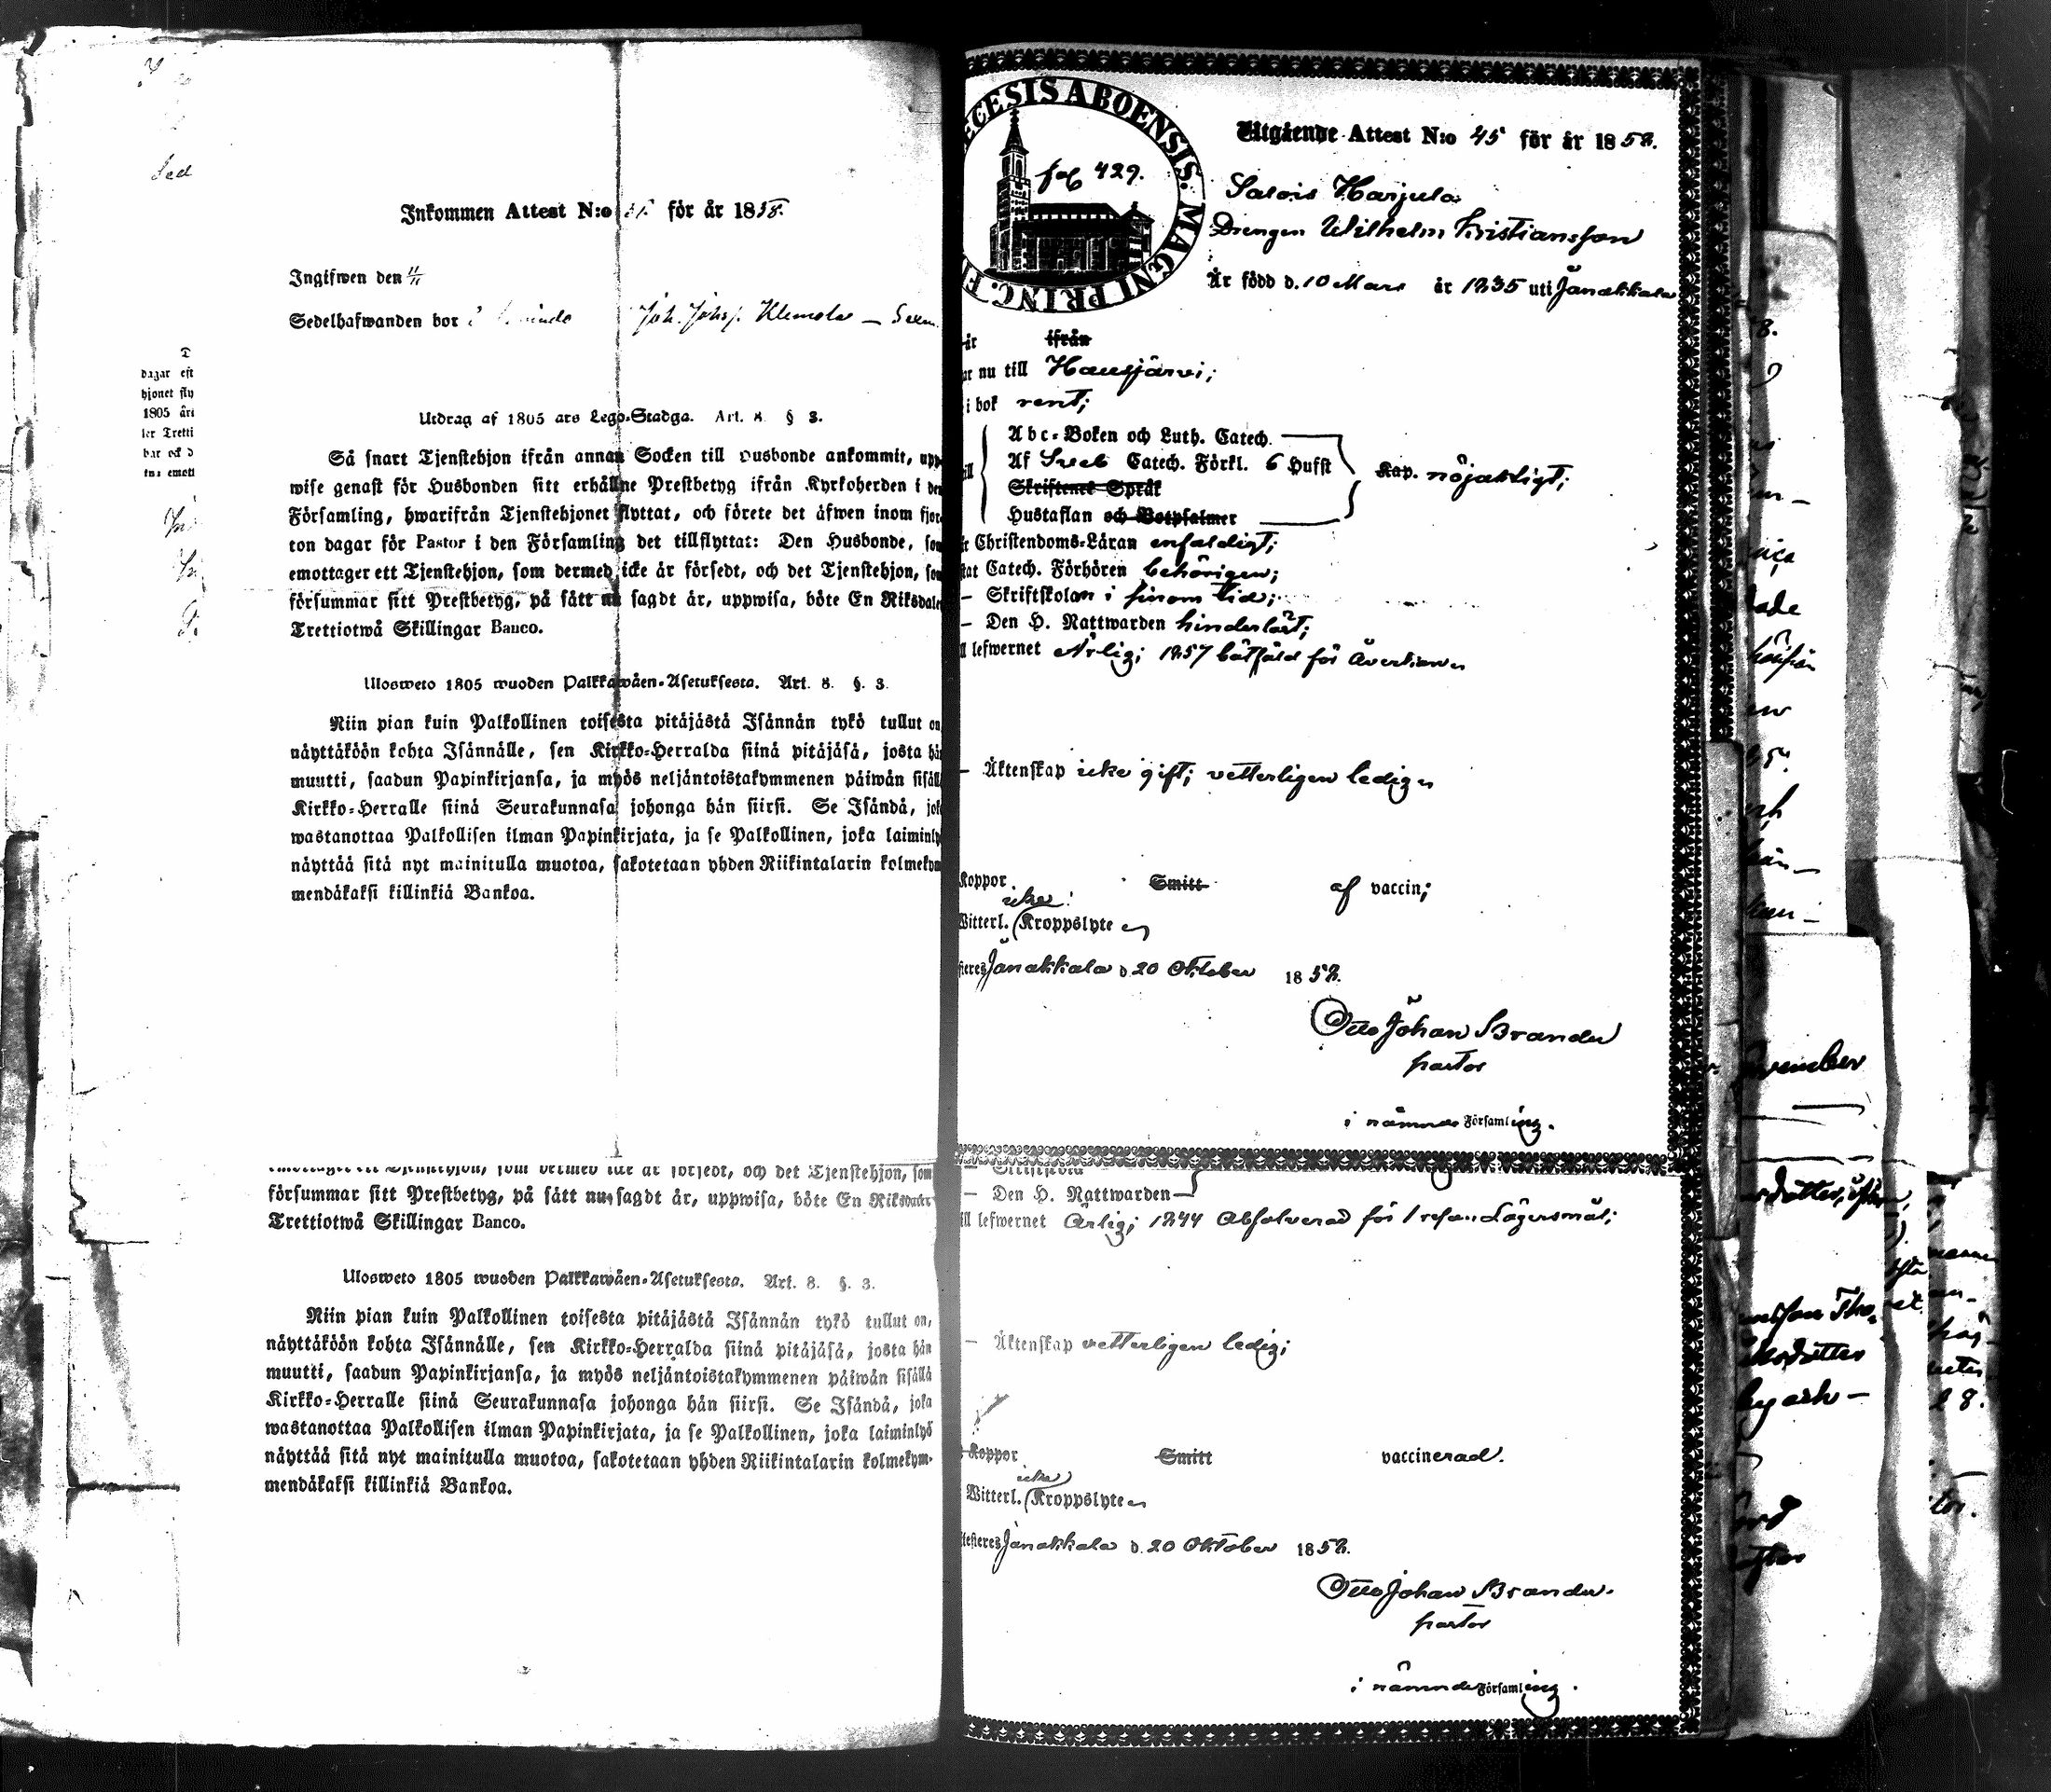 Inkommen Attest N:o för år 1858.
Ingifwen den 11/11
Sedelhafwanden bor Joh. Johss. Klemola —
Utdrag af 1805 ars Lego-Stadga. Art. 8 § 3.
Så snart Tjenstehjon ifrån annan Socken till Husbonde ankommit, upp-
wise genast för Husbonden sitt erhållne Prestbetyg ifrån Kyrkoherden i den
Församling, hwarifrån Tjenstehjonet flyttat, och förete det äfwen inom fjor-
ton dagar för Pastor i den Församling det tillflyttat: Den Husbonde, som
emottager ett Tjenstehjon, som dermed icke är försedt, och det Tjenstehjon, som
försummar sitt Prestbetyg, på sätt nu sagdt är, uppwisa, böte En Riksdaler
Trettiotwå Skillingar Banco.
Ulosweto 1805 wuoden Palkkawäen-Asetuksesta. Art. 8. §. 3.
Niin pian kuin Palkollinen toisesta pitäjästä Isännän tykö tullut on,
näyttäköön kohta Isännälle, sen Kirkko-Herralda siinä pitäjäsä, josta hän
muutti, saadun Papinkirjansa, ja myös neljäntoistakymmenen päiwän sisällä
Kirkko-Herralle siinä Seurakunnasa johonga hän siirsi. Se Isändä, joka
wastanottaa Palkollisen ilman Papinkirjata, ja se Palkollinen, joka laiminlyö
näyttää sitä nyt mainitulla muotoa, sakotetaan yhden Riikintalarin kolmekym-
mendäkaksi killinkiä Bankoa.
emottager ett Tjenstehjon, som dermed icke är försedt, och det Tjenstehjon, som
försummar sitt Prestbetyg, på sätt nu sagdt är, uppwisa, böte En Riksdaler
Trettiotwå Skillingar Banco.
Ulosweto 1805 wuoden Palkkawäen-Asetuksesta. Art. 8. §. 3.
Niin pian kuin Palkollinen toisesta pitäjästä Isännän tykö tullut on,
näyttäköön kohta Isännälle, sen Kirkko-Herralda siinä pitäjäsä, josta hän
muutti, saadun Papinkirjansa, ja myös neljäntoistakymmenen päiwän sisällä
Kirkko-Herralle siinä Seurakunnasa johonga hän siirsi. Se Isändä, joka
wastanottaa Palkollisen ilman Papinkirjata, ja se Palkollinen, joka laiminlyö
näyttää sitä nyt mainitulla muotoa, sakotetaan yhden Riikintalarin kolmekym-
mendäkaksi killinkiä Bankoa.
ECESIS ABOENSIS. MAGNI PRINC. F
fol 429.
Utgående Attest N:o 45 för år 1858.
Salois Harjula
Drengen Wilhelm Kristiansson
Är född d. 10 Mars år 1835 uti Janakkala
är ifrån
ar nu till Hausjärvi;
i bok rent;
Abc-Boken och Luth. Catech.
Af Sveb Catech. Förkl. 6 Hufst Kap. nöjaktligt;
Skriftenes Språk
Hustaflan och Botpsalmer
Christendoms-Läran enfaldigt;
Catech. Förhören behörigen;
— Skriftskolan i sinom tid;
— Den H. Nattwarden hinderlöst;
lefwernet Ärlig; 1857 bötfäld för
— Äktenskap icke gift; vetterligen ledig
Koppor Smitt af vaccin;
icke
Witterl. Kroppslyte
Janakkala d 20 Oktober 1858.
Otto Johan Brander
pastor
i nämnde Församling.
— Skriftskola
— Den H. Nattwarden
lefwernet Ärlig; 1844 Absolverad för 1 resan Lägersmål;
— Äktenskap vetterligen ledig;
Koppor Smitt vaccinerad.
icke
Witterl. Kroppslyte
Janakkala d. 20 Oktober 1858.
Otto Johan Brander.
pastor
i nämnde Församling.